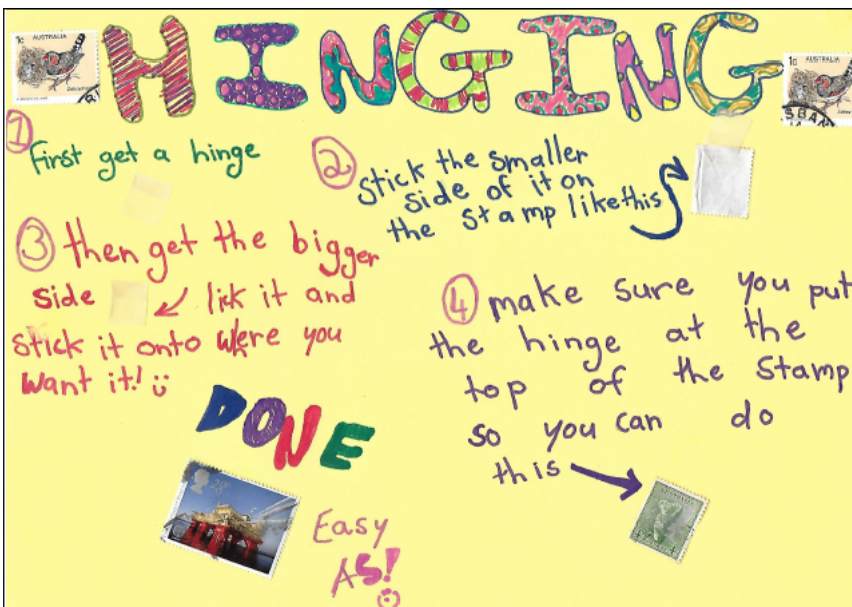 HINGING
1c AUSTRALIA
1c
AUSTRALIA
SBAN
1
First get a hinge
2
Stick the smaller
side of it on
the stamp like this
3 then get the bigger
side lick it and
stick it onto were you
want it!
4 make sure you put
the hinge at the
top of the stamp
so you can do
this
DONE
28
Easy
AS!